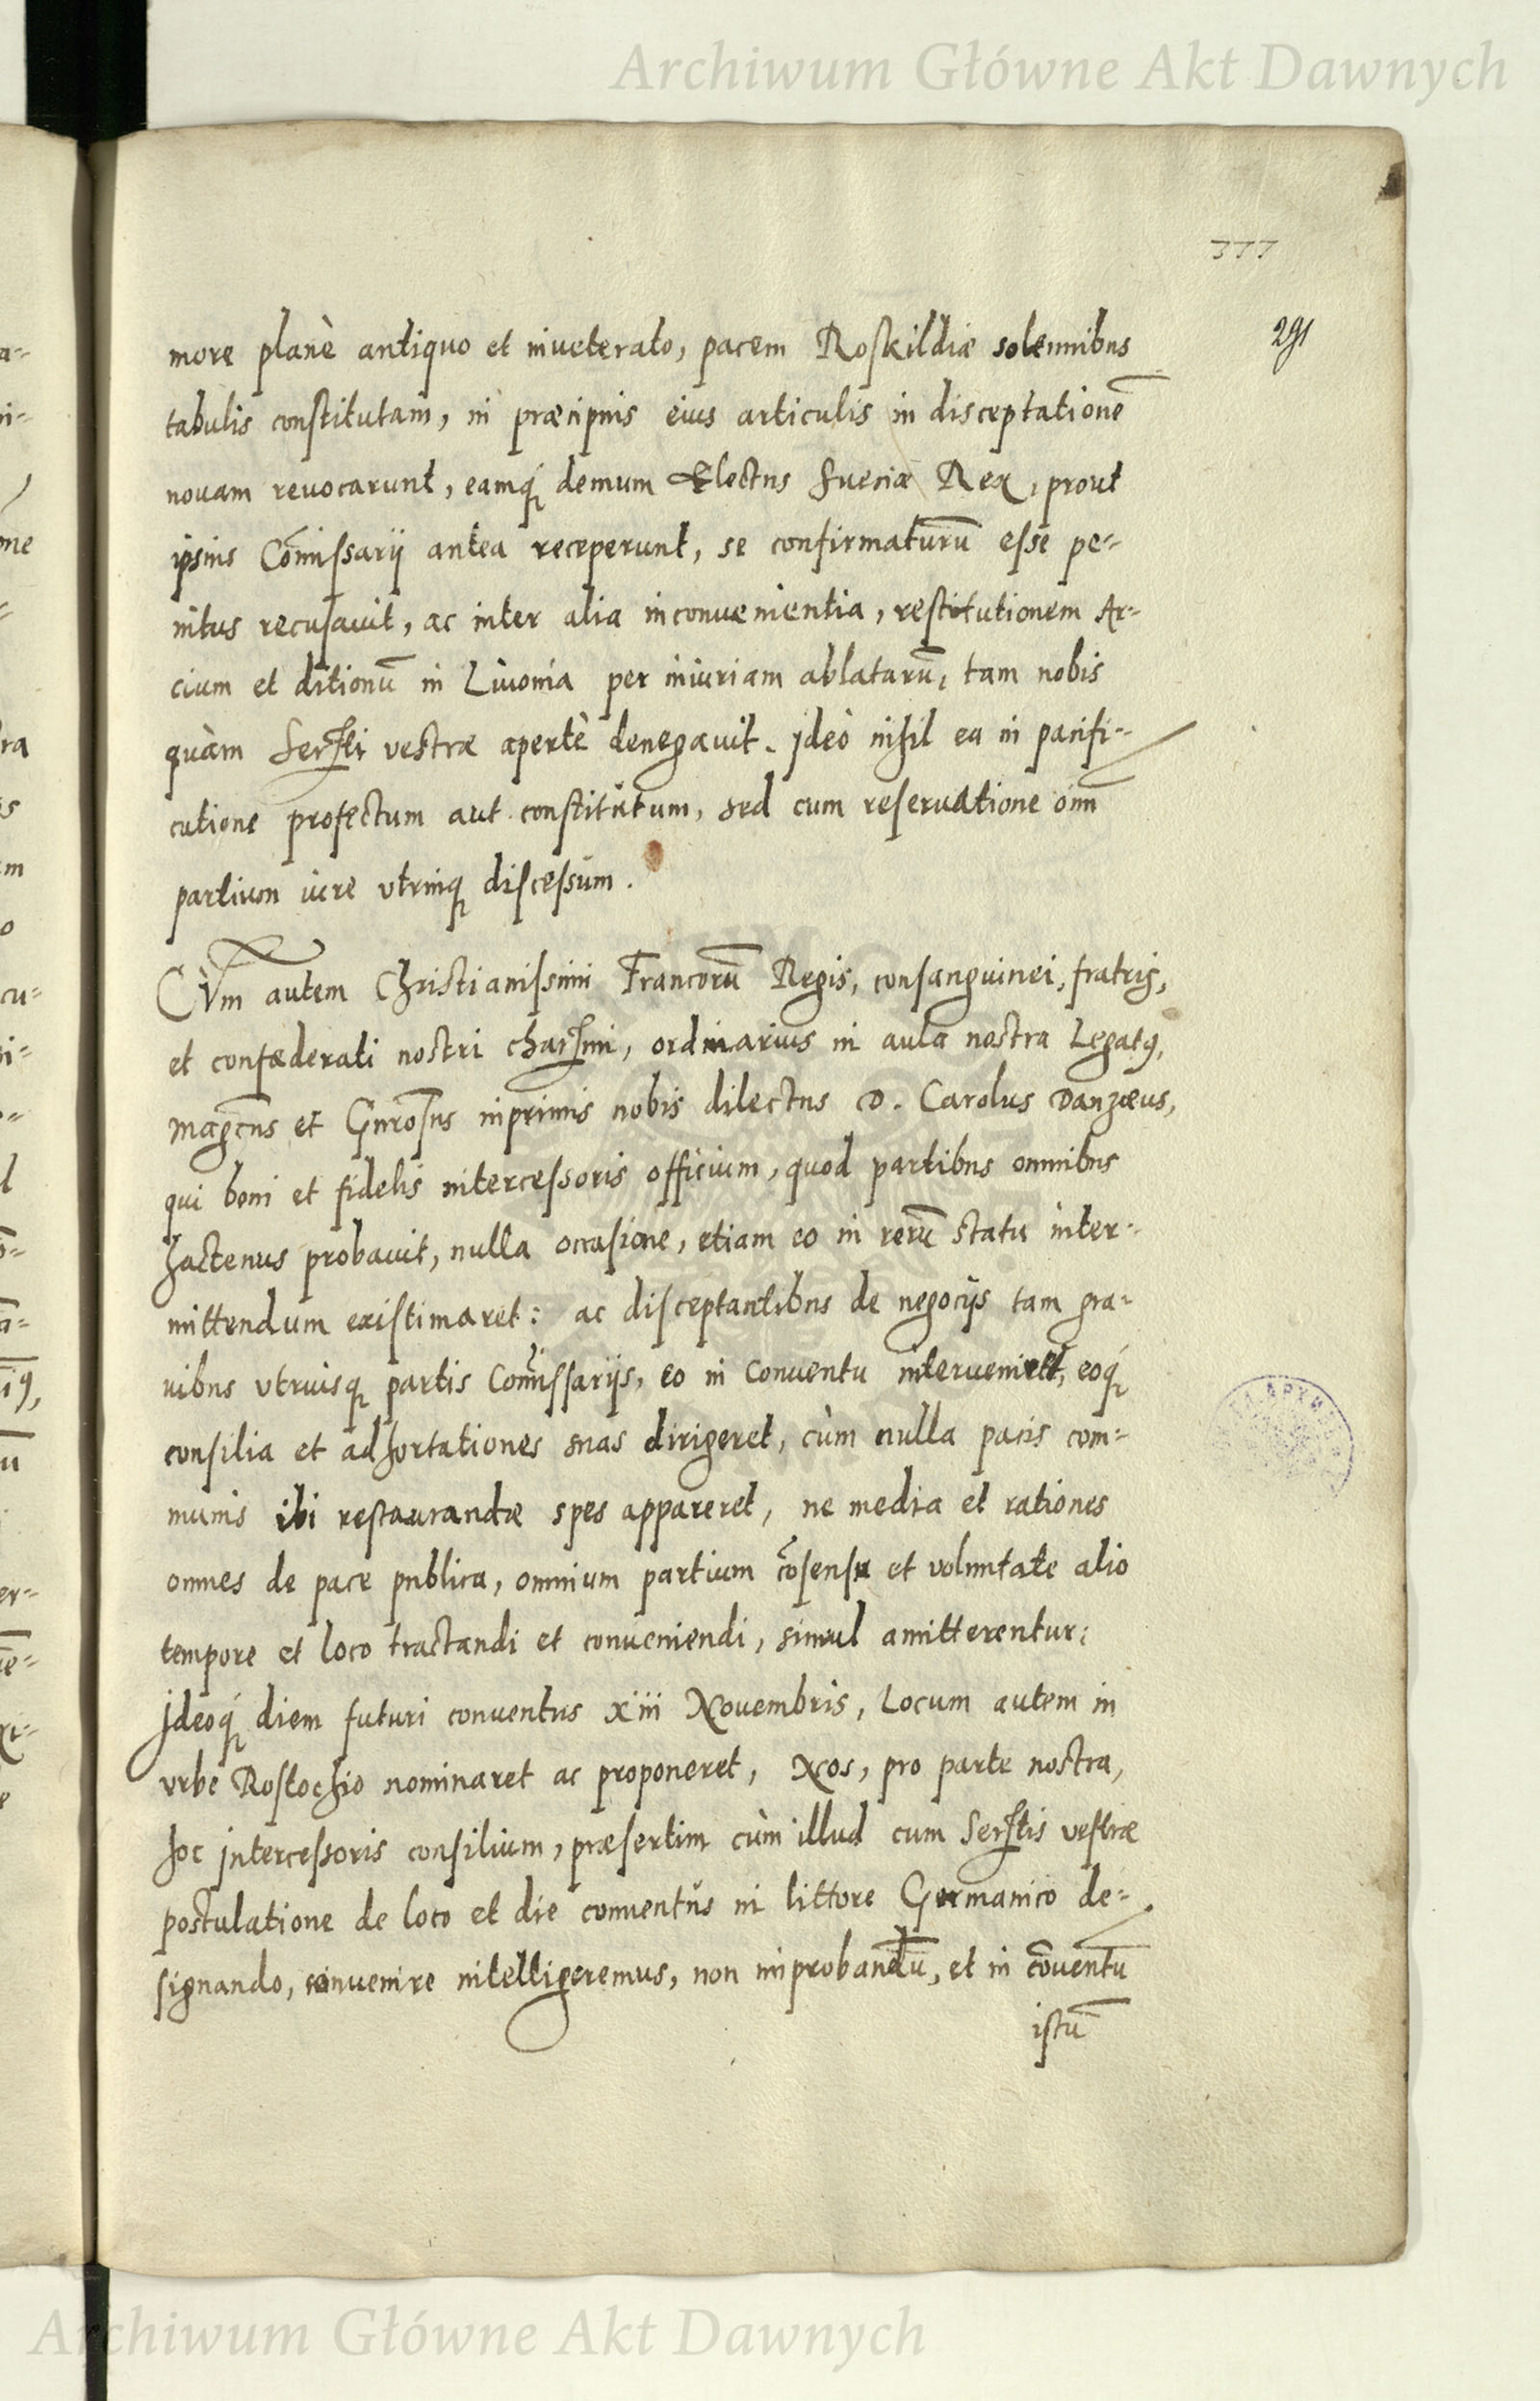 Archiwum Główne Akt Dawnych
377
291
more planè antiquo et inueterato, pacem Roskildiæ solennibus
tabulis constitutam, in præcipuis eius articulis in disceptationē
nouam reuocarunt, eamq́ demum Electus Sueciæ Rex, prout
ipsius Com̃issarij antea receperunt, se confirmaturū esse pe=
nitus recusauit, ac inter alia inconuenientia, restitutionem Ar=
cium et ditionū in Liuonia per iniuriam ablatarū, tam nobis
quàm Serᵗⁱ vestræ apertè denegauit. Ideò nihil ea in pacifi=
catione profectum aut constitutum, sed cum reseruatione om̄
partium iure vtrinq discessum.
CVm autem Christianissimi Francorū Regis, consanguinei, fratris,
et confæderati nostri charᵐⁱ, ordinarius in aula nostra Legatꝰ,
magᶜᵘˢ et Gnrosus inprimis nobis dilectus D. Carolus Danzæus,
qui boni et fidelis intercessoris officium, quod partibus omnibus
hactenus probauit, nulla occasione, etiam eo in rerū statu inter=
mittendum existimaret: ac disceptantibus de negocijs tam gra=
uibus vtriusq partis Com̃issarijs, eo in Conuentu interueniret, eoq́
consilia et adhortationes suas dirigeret, cùm nulla pacis com=
munis ibi restaurandæ spes appareret, ne media et rationes
omnes de pace publica, omnium partium cōsensu et voluntate alio
tempore et loco tractandi et conueniendi, simul amitterentur:
Ideoq́ diem futuri conuentus xiii Nouembris, Locum autem in
vrbe Rostochio nominaret ac proponeret, Nos, pro parte nostra,
hoc Intercessoris consilium, præsertim cùm illud cum Serᵗⁱˢ vestræ
postulatione de loco et die conuentus in littore Germanico de=
signando, conuenire intelligeremus, non improbandū, et in cōuentū
istū
Archiwum Główne Akt Dawnych